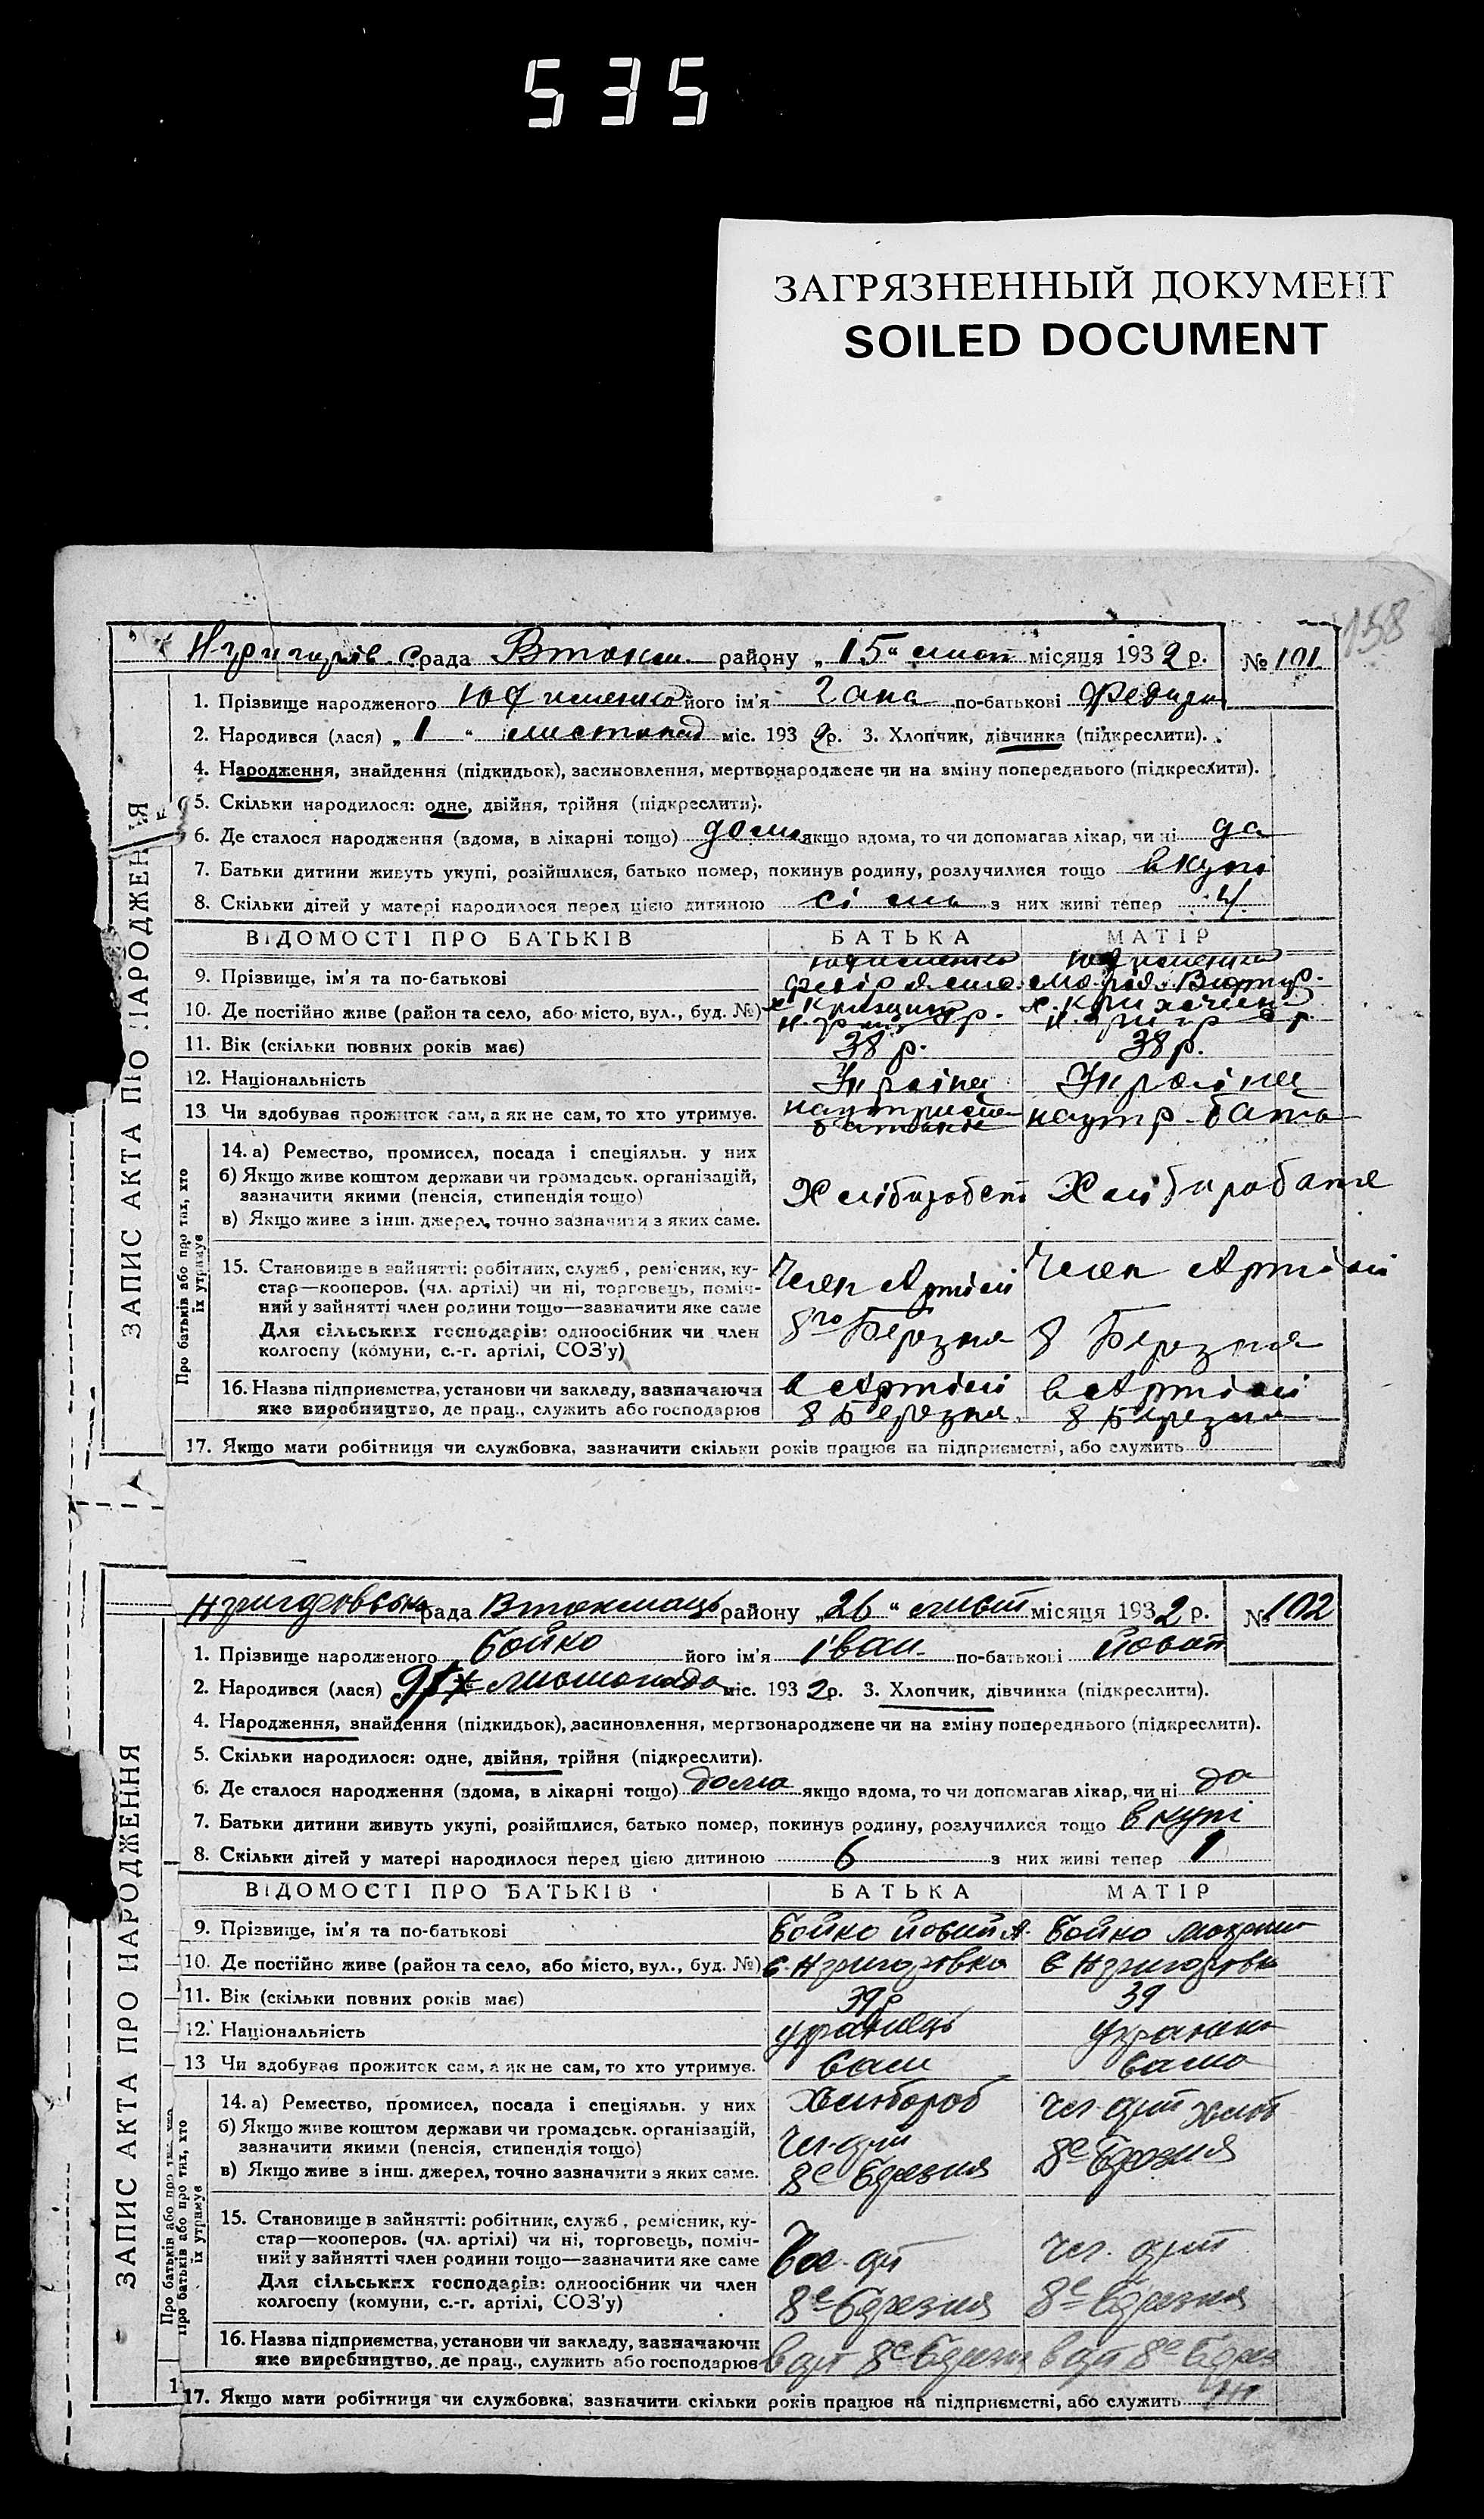 535
ЗАГРЯЗНЕННЫЙ ДОКУМЕНТ
SOILED DOCUMENT
158
рада Втокм. району „15“ лист місяця 1932 р. № 101
1. Прізвище народженого його ім'я Гана по-батькові
2. Народився (лася) „1“ листопад міс. 1932р. 3. Хлопчик, дівчинка (підкреслити).
4. Народження, знайдення (підкидьок), засиновлення, мертвонароджене чи на зміну попереднього (підкреслити).
5. Скільки народилося: одне, двійня, трійня (підкреслити).
6. Де сталося народження (вдома, в лікарні тощо) дома якщо вдома, то чи допомагав лікар, чи ні да
7. Батьки дитини живуть укупі, розійшлися, батько помер, покинув родину, розлучилися тощо вкупі
8. Скільки дітей у матері народилося перед цією дитиною сім з них живі тепер 4
ВІДОМОСТІ ПРО БАТЬКІВ БАТЬКА МАТІР
9. Прізвище, ім'я та по-батькові
10. Де постійно живе (район та село, або місто, вул., буд. №)
11. Вік (скільки повних років має) 38 р. 38 р.
12. Національність
13 Чи здобував прожиток сам, а як не сам, то хто утримує.
14. а) Ремество, промисел, посада і спеціяльн. у них
б) Якщо живе коштом держави чи громадськ. організацій,
зазначити якими (пенсія, стипендія тощо)
в) Якщо живе з інш. джерел, точно зазначити з яких саме.
15. Становище в зайнятті: робітник, служб., ремісник, ку-
стар—кооперов. (чл. артілі) чи ні, торговець, поміч-
ний у зайнятті член родини тощо—зазначити яке саме
Для сільських господарів: одноосібник чи член
колгоспу (комуни, с.-г. артілі, СОЗ'у)
Член Артілі Член Артілі
8го Березня 8 Березня
16. Назва підприємства, установи чи закладу, зазначаючи
яке виробництво, де прац., служить або господарює
в Артілі в Артілі
8 Березня 8 Березня
17. Якщо мати робітниця чи службовка, зазначити скільки років працює на підприємстві, або служить
ЗАПИС АКТА ПРО НАРОДЖЕННЯ
Про батьків або про тих, хто
їх утримує
рада Втокмаць району „26“ лист місяця 1932 р. № 102
1. Прізвище народженого Бойко його ім'я Іван по-батькові
2. Народився (лася) листопада міс. 1932р. 3. Хлопчик, дівчинка (підкреслити).
4. Народження, знайдення (підкидьок), засиновлення, мертвонароджене чи на зміну попереднього (підкреслити).
5. Скільки народилося: одне, двійня, трійня (підкреслити).
6. Де сталося народження (вдома, в лікарні тощо) дома якщо вдома, то чи допомагав лікар, чи ні да
7. Батьки дитини живуть укупі, розійшлися, батько помер, покинув родину, розлучилися тощо вкупі
8. Скільки дітей у матері народилося перед цією дитиною 6 з них живі тепер 1
ВІДОМОСТІ ПРО БАТЬКІВ БАТЬКА МАТІР
9. Прізвище, ім'я та по-батькові Бойко Бойко
10. Де постійно живе (район та село, або місто, вул., буд. №) с. Нгригоровка с Нгригоровка
11. Вік (скільки повних років має) 39р 39
12. Національність українець українка
13 Чи здобував прожиток сам, а як не сам, то хто утримує. сам сама
14. а) Ремество, промисел, посада і спеціяльн. у них Хлібороб
б) Якщо живе коштом держави чи громадськ. організацій,
зазначити якими (пенсія, стипендія тощо)
в) Якщо живе з інш. джерел, точно зазначити з яких саме. 8е Березня 8е Березня
15. Становище в зайнятті: робітник, служб., ремісник, ку-
стар—кооперов. (чл. артілі) чи ні, торговець, поміч-
ний у зайнятті член родини тощо—зазначити яке саме
Для сільських господарів: одноосібник чи член
колгоспу (комуни, с.-г. артілі, СОЗ'у) 8е Березня 8е Березня
16. Назва підприємства, установи чи закладу, зазначаючи
яке виробництво, де прац., служить або господарює
17. Якщо мати робітниця чи службовка, зазначити скільки років працює на підприємстві, або служить
ЗАПИС АКТА ПРО НАРОДЖЕННЯ
Про батьків або про тих, хто
їх утримує